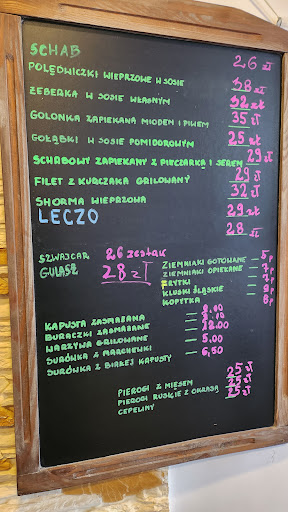 SCHAB 26 zł
POLĘDWICZKI WIEPRZOWE W SOSIE 38 zł
ŻEBERKA W SOSIE WŁASNYM 32 zł
GOLONKA ZAPIEKANA MIODEM I PIWEM 35 zł
GOŁĄBKI W SOSIE POMIDOROWYM 25 zł
SCHABOWY ZAPIEKANY Z PIECZARKĄ I SEREM 29 zł
FILET Z KURCZAKA GRILOWANY 29 zł
SHORMA WIEPRZOWA 32 zł
LECZO 29 zł
28 zł
SZWAJCAR 26 zestaw
GULASZ 28 zł
ZIEMNIAKI GOTOWANE - 5
ZIEMNIAKI OPIEKANE - 7
FRYTKI - 7
KLUSKI ŚLĄSKIE - 8
KOPYTKA - 8
KAPUSTA ZASMAŻANA -
BURACZKI ZASMAŻANE -
WARZYWA GRILOWANE -
SURÓWKA Z MARCHEWKI - 5.00
SURÓWKA Z BIAŁEJ KAPUSTY - 6,50
PIEROGI Z MIĘSEM 25 zł
PIEROGI RUSKIE Z OKRASĄ 25 zł
CEPELINY 25 zł